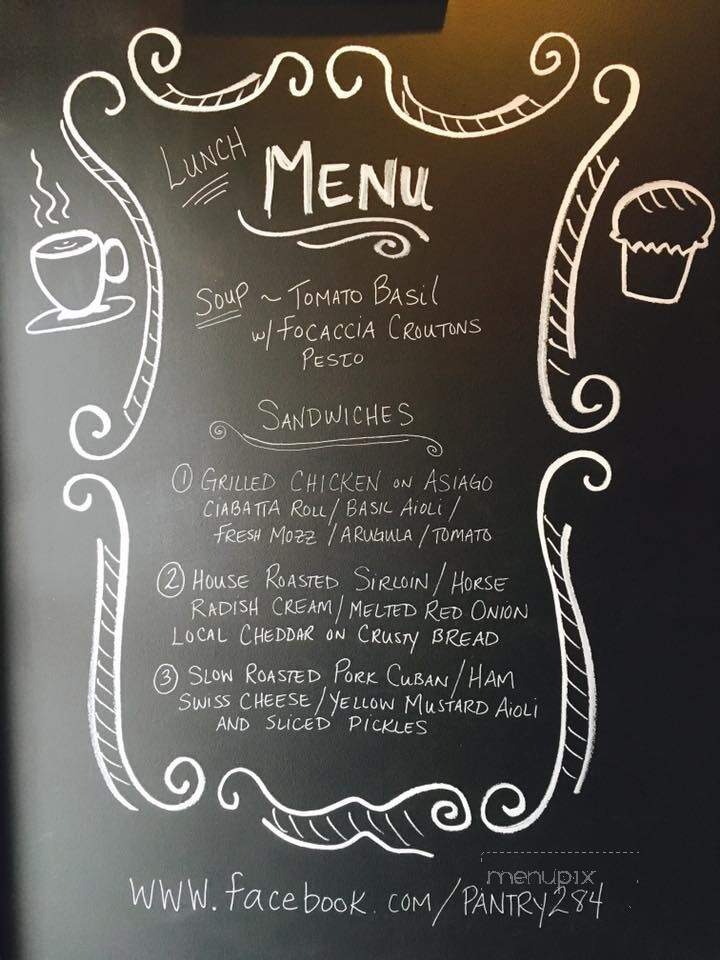 LUNCH MENU
SOUP ~ TOMATO BASIL
W/ FOCACCIA CROUTONS
PESTO
SANDWICHES
① GRILLED CHICKEN ON ASIAGO
CIABATTA ROLL / BASIL AIOLI /
FRESH MOZZ / ARUGULA / TOMATO
② HOUSE ROASTED SIRLOIN / HORSE
RADISH CREAM / MELTED RED ONION
LOCAL CHEDDAR ON CRUSTY BREAD
③ SLOW ROASTED PORK CUBAN / HAM
SWISS CHEESE / YELLOW MUSTARD AIOLI
AND SLICED PICKLES
menupix
WWW.facebook.COM/PANTRY284